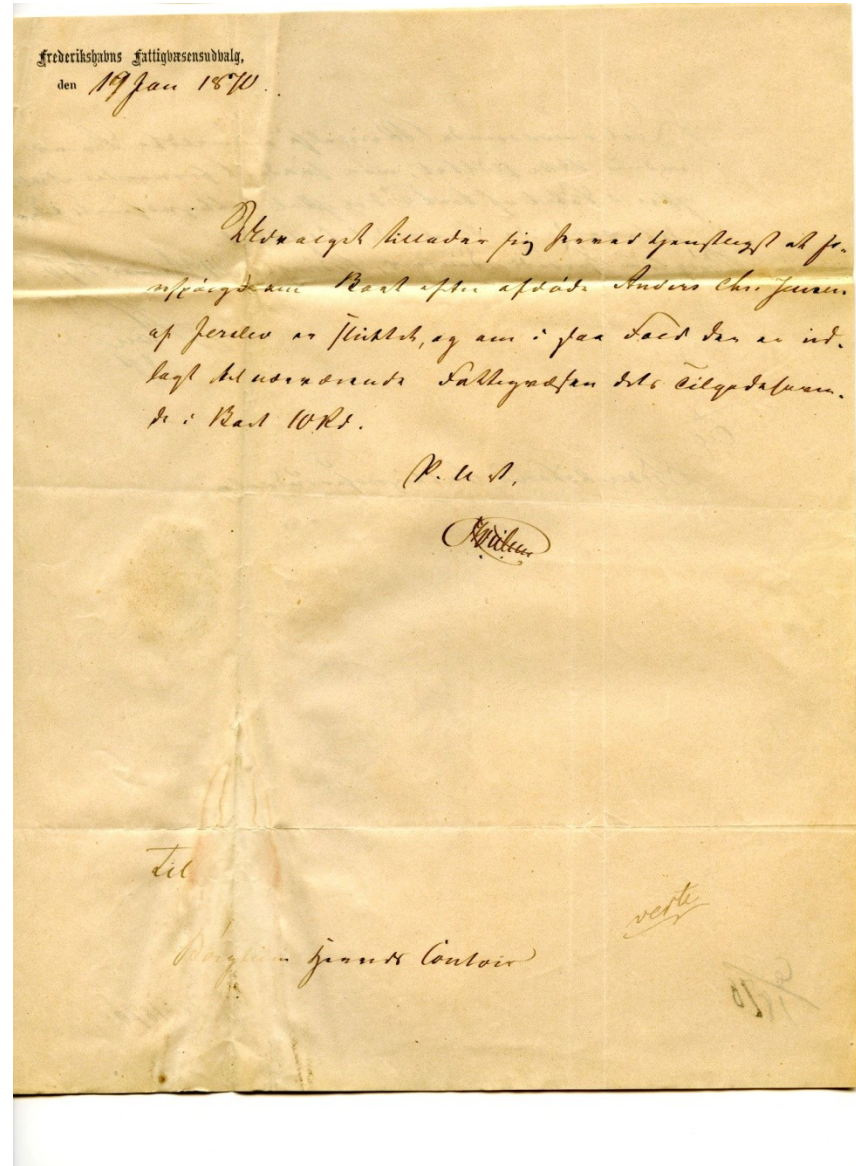 Frederikshavns Fattigvæsensudvalg,
den 19 Jan 1870.
Udvalget tillader sig herved tjenstligst at fo-
respørge om Boet efter afdøde Anders Chr. Jensen
af Jerslev er sluttet, og om i saa Fald der er ud-
lagt det nærværende Fattigvæsen dets Tilgodehaven-
de i Boet 10 Rd.
P. U. V.
Til
Børglum Herreds Contoir
verte